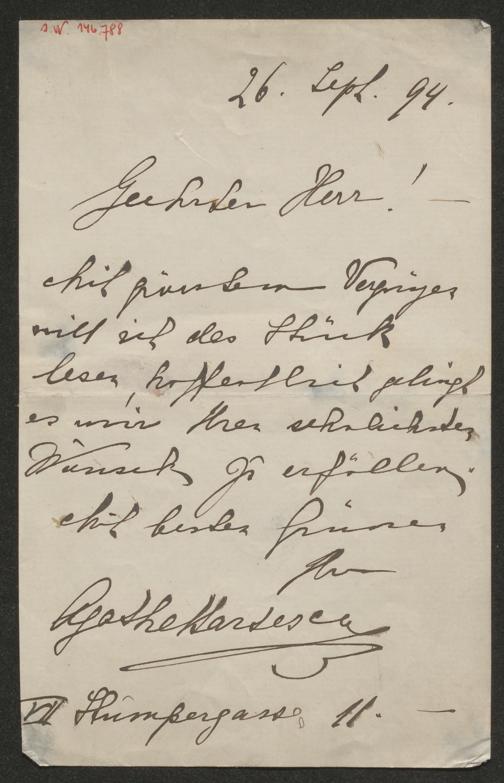 I.N. 146.788
26. Sept. 94.
Geehrter Herr! —
Mit grösstem Vergnügen
will ich das Stück
lesen, hoffentlich gelingt
es mir Ihren sehnlichsten
Wunsch zu erfüllen.
Mit besten Grüssen
Ihre
Agathe Barsescu
VII Stumpergasse 11. —